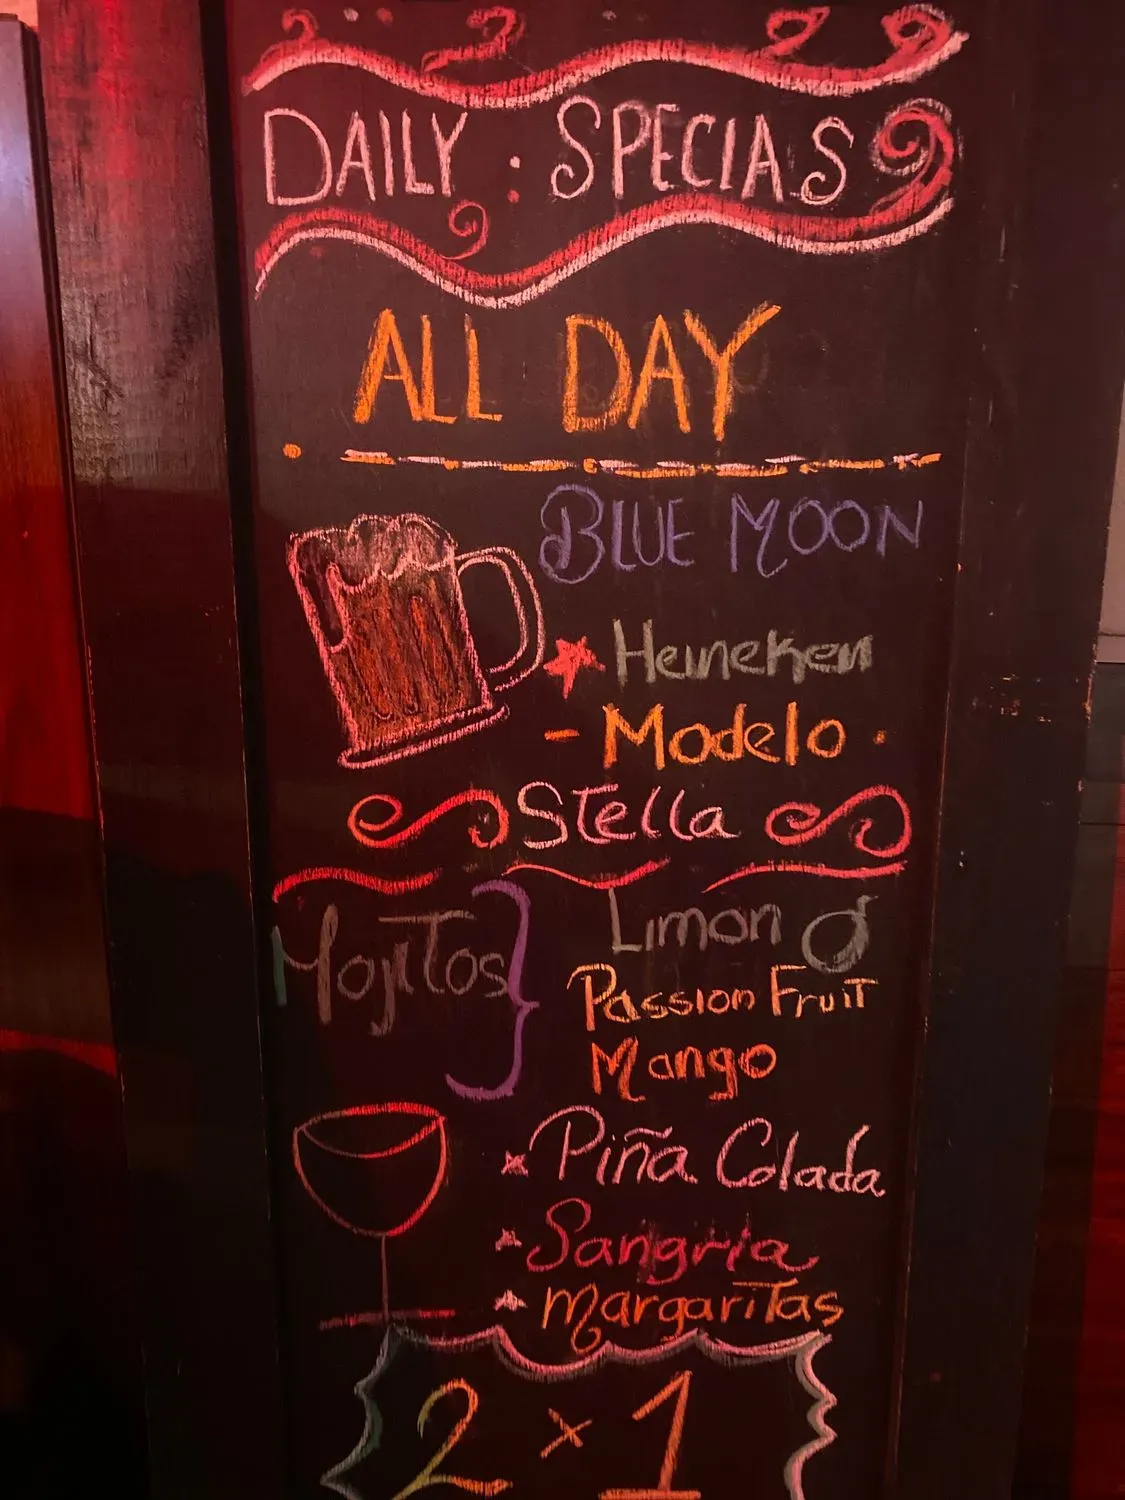 DAILY : SPECIAS
ALL DAY
BLUE MOON
Heineken
- Modelo .
Stella
Mojitos } Limon
Passion Fruit
Mango
Piña Colada
Sangria
Margaritas
2 x 1